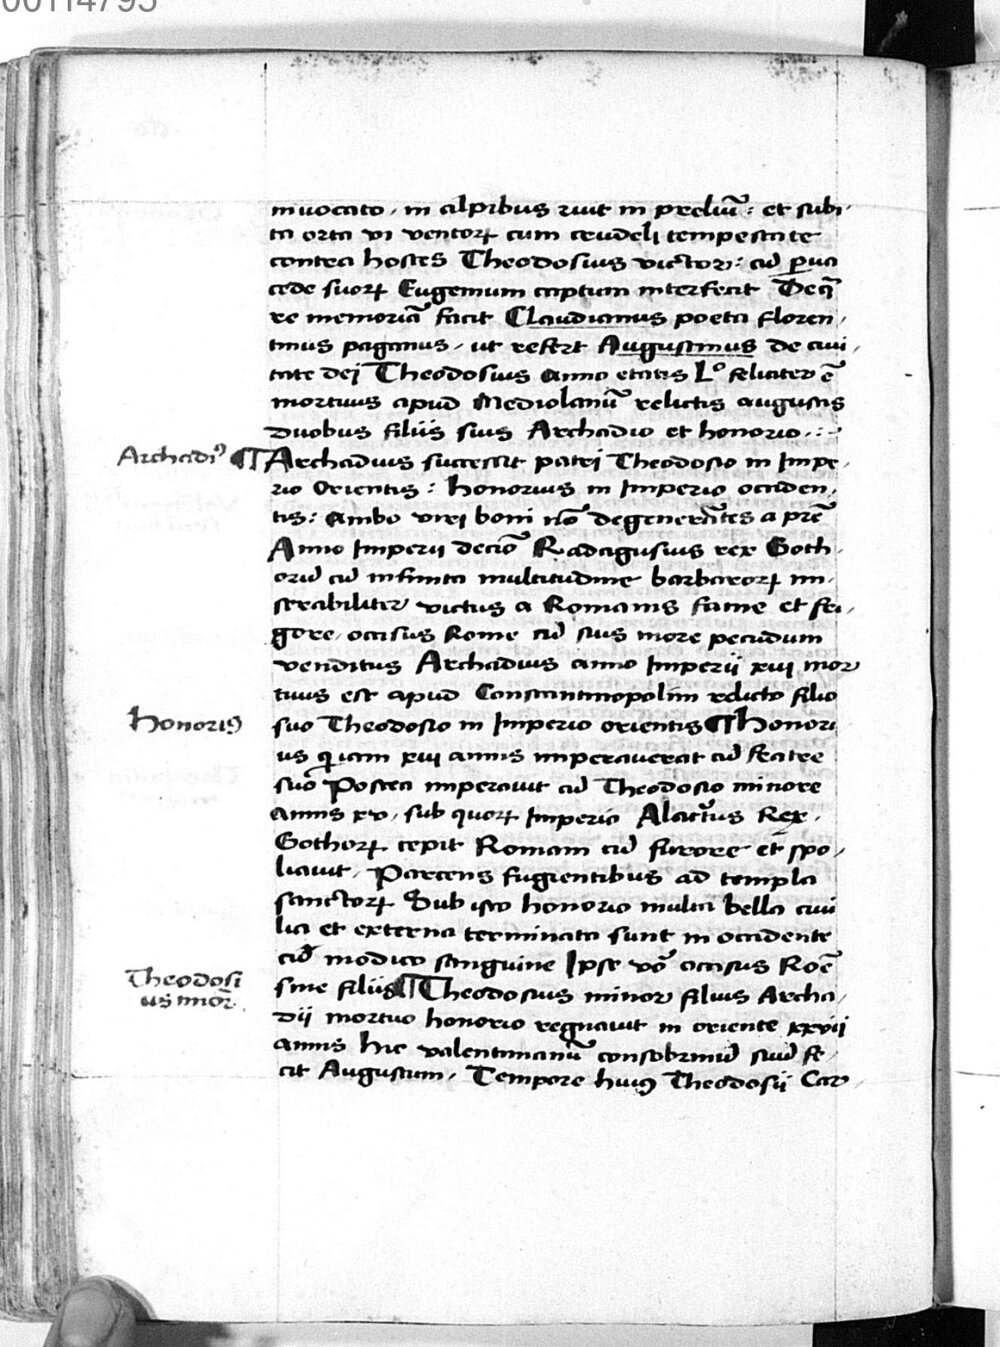 00114795
inuocato, in alpibus ruit in preliū: et subi-
ta orta vi ventoꝝ cum crudeli tempestate
contra hostes Theodosius victor: cū ꝑua
cede suoꝝ Eugenium captum interfecit De q̄
re memoriā facit Claudianus poeta floren-
tinus paganus, ut refert Augustinus de ciui-
tate dei Theodosius anno etatis Lº feliciter ē
mortuus apud Mediolanū relictis augustis
duobus filiis suis Archadio et honorio.:~
Archadiꝰ
¶ Archadius successit patri Theodosio in Impe-
rio Orientis: honorius in Imperio occiden-
tis: Ambo viri boni nō degenerātes a prē
Anno Imperii decīo Radagusius rex Goth-
orū cū infinita multitudine barbaroꝝ mi-
serabiliter victus a Romanis fame et fri-
gore, occisus Rome cū suis more pecudum
venditus Archadius anno Imperii xiii mor
tuus est apud Constantinopolim relicto filio
Honoriꝰ
suo Theodosio in Imperio orientis ¶ Honori
us qui iam xiii annis imperauerat cū fratre
suo Postea imperauit cū Theodosio minore
annis xv, sub quoꝝ Imperio Alaricus Rex
Gothoꝝ cepit Romam cū furore et spo-
liauit, Parcens fugientibus ad templa
sanctoꝝ Sub isto honorio multa bella ciui
lia et externa terminata sunt in occidente
cū modico sanguine Ipse vō occisus Roē
Theodosi
us minor.
sine filiis ¶ Theodosius minor filius Archa-
dii mortuo honorio regnauit in oriente xxvii
annis hic valentinianū consobrinū suū fe-
cit Augustum, Tempore huiꝰ Theodosii Car